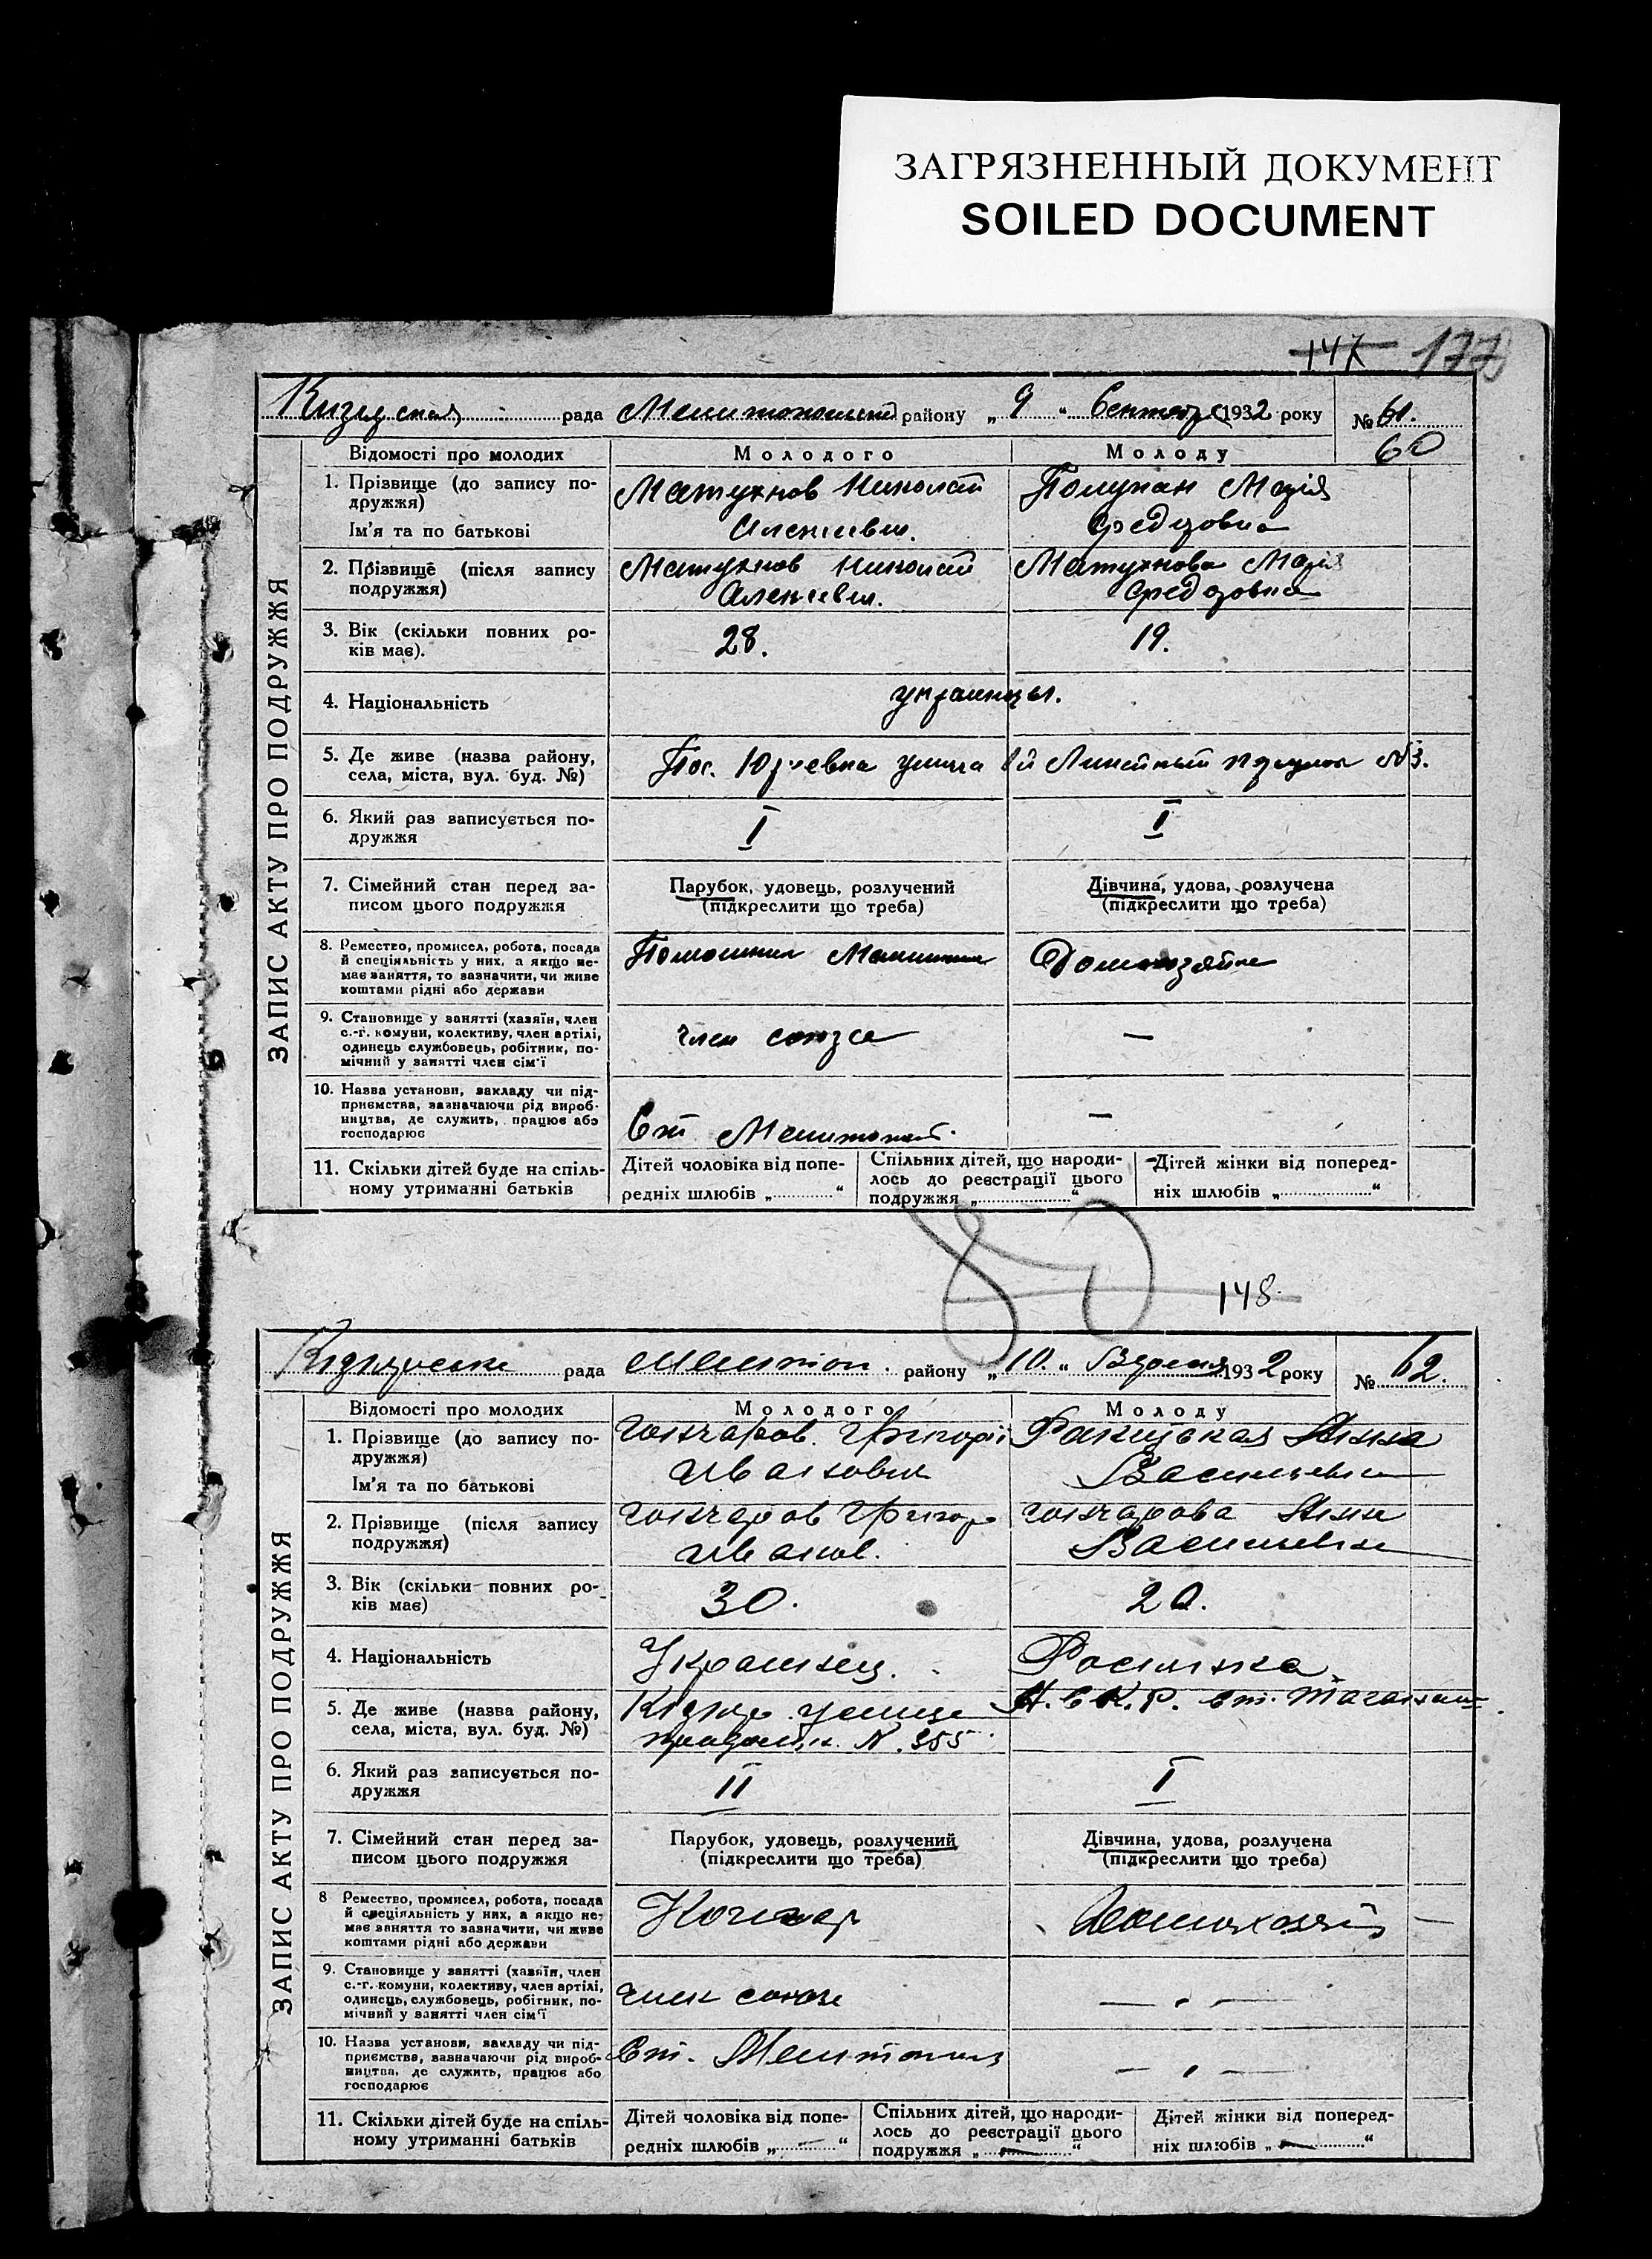 ЗАГРЯЗНЕННЫЙ ДОКУМЕНТ
SOILED DOCUMENT
147 177
рада району „ 9 “ 1932 року № 61.
60
ЗАПИС АКТУ ПРО ПОДРУЖЖЯ
Відомості про молодих Молодого Молоду
1. Прізвище (до запису по-
дружжя)
Ім'я та по батькові
Матухнов Николай
Полупан Марія
Федоровна
2. Прізвище (після запису
подружжя)
Матухнов Николай
Матухнова Марія
Федоровна
3. Вік (скільки повних ро-
ків має).
28. 19.
4. Національність украинцы.
5. Де живе (назва району,
села, міста, вул. буд. №)
Пос. Юрьевка улица 1й Линейный №3.
6. Який раз записується по-
дружжя
I I
7. Сімейний стан перед за-
писом цього подружжя
Парубок, удовець, розлучений
(підкреслити що треба)
Дівчина, удова, розлучена
(підкреслити що треба)
8. Ремество, промисел, робота, посада
й спеціяльність у них, а якщо не-
має заняття, то зазначити, чи живе
коштами рідні або держави
Помошник Машиниста
Домохозяйка
9. Становище у занятті (хазяїн, член
с.-г. комуни, колективу, член артілі,
одинець службовець, робітник, по-
мічний у занятті член сім'ї
член союза —
10. Назва установи, закладу чи під-
приємства, зазначаючи рід вироб-
ництва, де служить, працює або
господарює
Ст Мелитополь. —
11. Скільки дітей буде на спіль-
ному утриманні батьків
Дітей чоловіка від попе-
редніх шлюбів „ “
Спільних дітей, що народи-
лось до реєстрації цього
подружжя „ “
Дітей жінки від поперед-
ніх шлюбів „ “
148
рада Мелітоп. району „ 10. “ Вересня 1932 року № 62.
ЗАПИС АКТУ ПРО ПОДРУЖЖЯ
Відомості про молодих Молодого Молоду
1. Прізвище (до запису по-
дружжя)
Ім'я та по батькові
Гончаров. Григорій
Иванович
Ракицькая Анна
Васильевна
2. Прізвище (після запису
подружжя)
Гончаров Григор
Иванов.
Гончарова Анна
Васильевна
3. Вік (скільки повних ро-
ків має)
30. 20.
4. Національність Украинец. Росиянка
5. Де живе (назва району,
села, міста, вул. буд. №)
N. 355
ст.
6. Який раз записується по-
дружжя
II I
7. Сімейний стан перед за-
писом цього подружжя
Парубок, удовець, розлучений
(підкреслити що треба)
Дівчина, удова, розлучена
(підкреслити що треба)
8 Ремество, промисел, робота, посада
й спеціяльність у них, а якщо не-
має заняття то зазначити, чи живе
коштами рідні або держави
Кочегар
9. Становище у занятті (хазяїн, член
с.-г. комуни, колективу, член артілі,
одинець, службовець, робітник, по-
мічний у занятті член сім'ї
член союза — „ —
10. Назва установи, закладу чи під-
приємства, зазначаючи рід вироб-
ництва, де служить, працює або
господарює
Ст. Мелитополь — „ —
11. Скільки дітей буде на спіль-
ному утриманні батьків
Дітей чоловіка від попе-
редніх шлюбів „ — “
Спільних дітей, що народи-
лось до реєстрації цього
подружжя „ — “
Дітей жінки від поперед-
ніх шлюбів „ — “